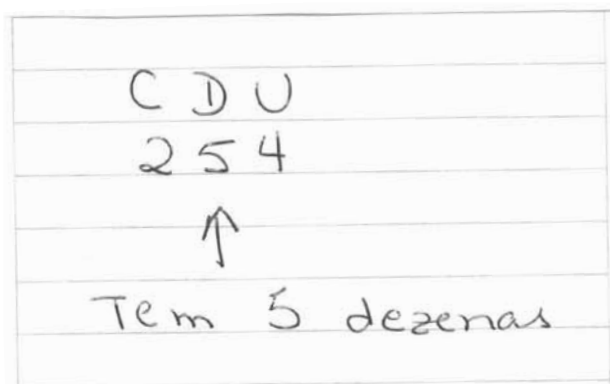 C D U
2 5 4
↑
Tem 5 dezenas